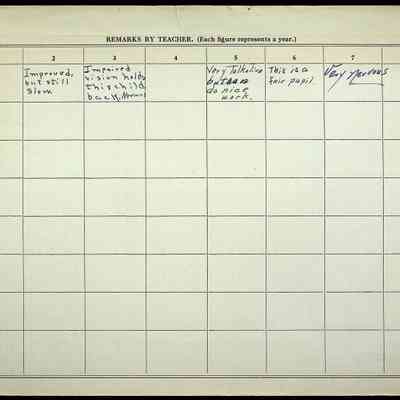 REMARKS BY TEACHER. (Each figure represents a year.)
2 3 4 5 6 7
Improved,
but still
slow
Impaired
vision holds
this child
back.
Very Talkative
but can
do nice
work.
This is a
fair pupil.
Very nervous